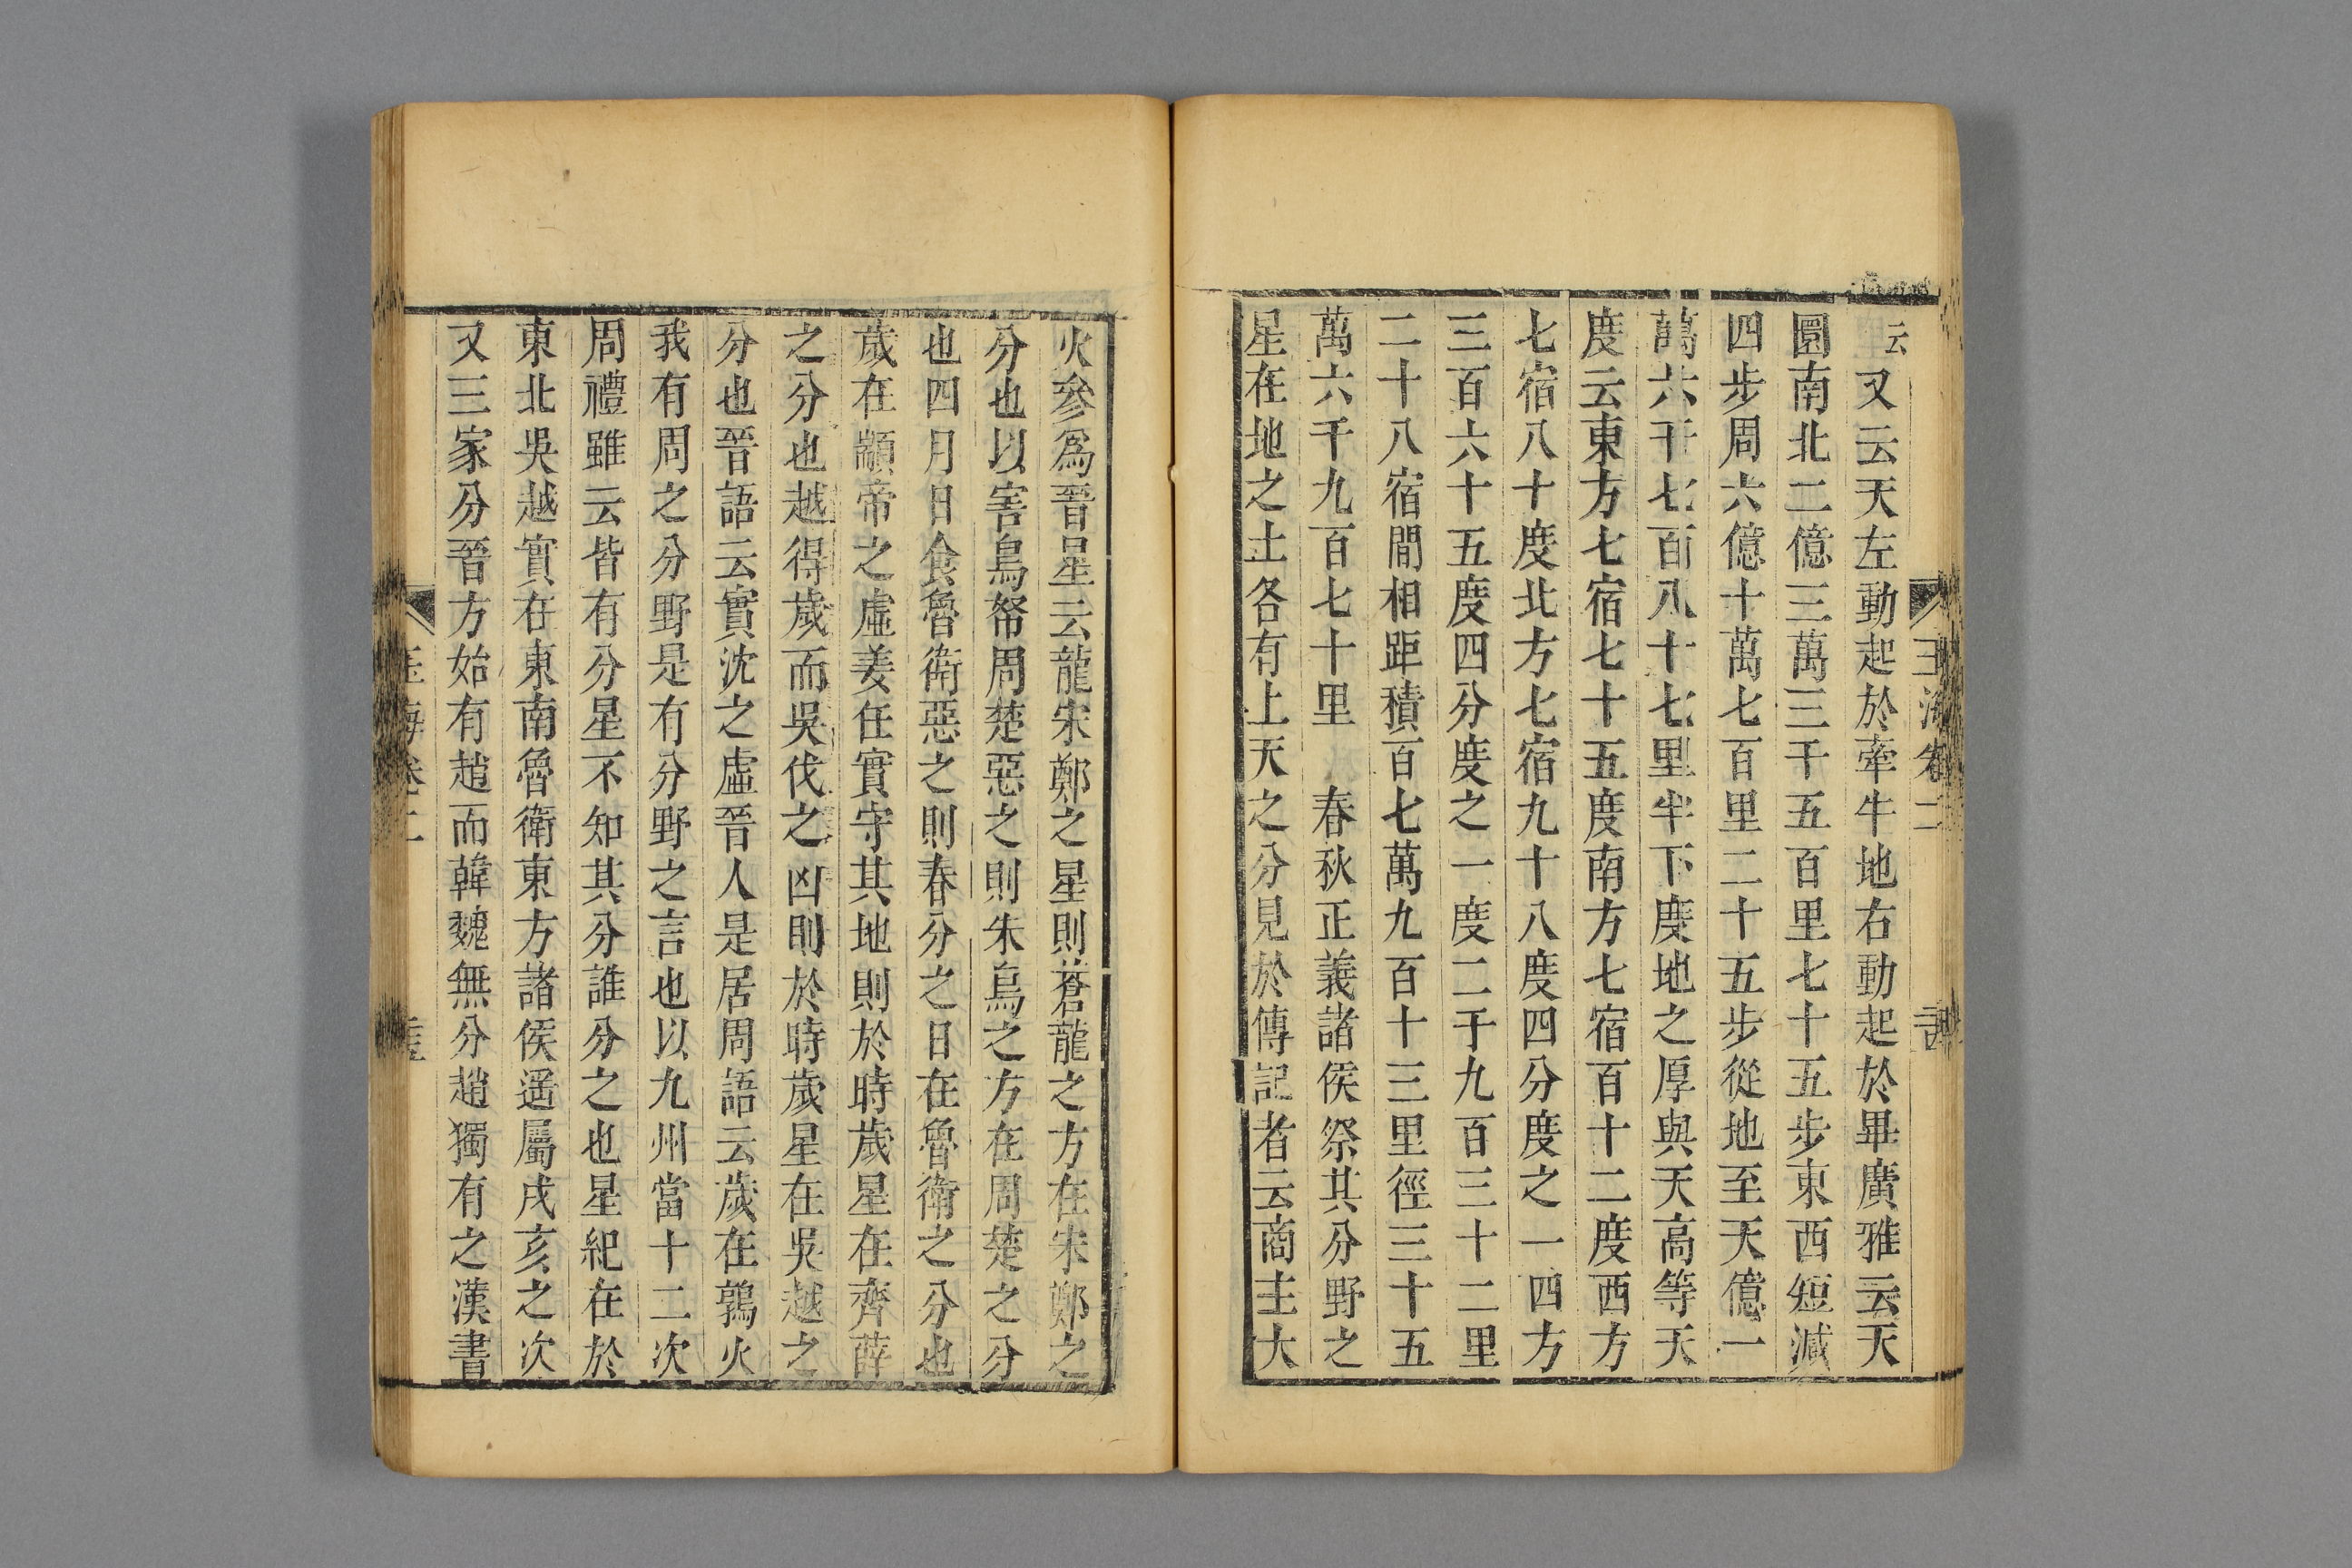 云又云天左動起於牽牛地右動起於畢廣雅云天
圜南北二億三萬三千五百里七十五步東西短減
四步周六億十萬七百里二十五步從地至天億一
萬六千七百八十七里半下度地之厚與天高等天
度云東方七宿七十五度南方七宿百十二度西方
七宿八十度北方七宿九十八度四分度之一四方
三百六十五度四分度之一度二千九百三十二里
二十八宿間相距積百七萬九百十三里徑三十五
萬六千九百七十里 春秋正義諸侯祭其分野之
星在地之土各有上天之分見於傳記者云商主大
火參爲晉星云龍宋鄭之星則蒼龍之方在宋鄭之
分也以害鳥帑周楚惡之則朱鳥之方在周楚之分
也四月日食魯衛惡之則春分之日在魯衛之分也
歲在顓帝之虛姜任實守其地則於時歲星在齊薛
之分也越得歲而吳伐之凶則於時歲星在吳越之
分也晉語云實沈之虛晉人是居周語云歲在鶉火
我有周之分野是有分野之言也以九州當十二次
周禮雖云皆有分星不知其分誰分之也星紀在於
東北吳越實在東南魯衛東方諸侯遥屬戌亥之次
又三家分晉方始有趙而韓魏無分趙獨有之漢書
玉海卷二